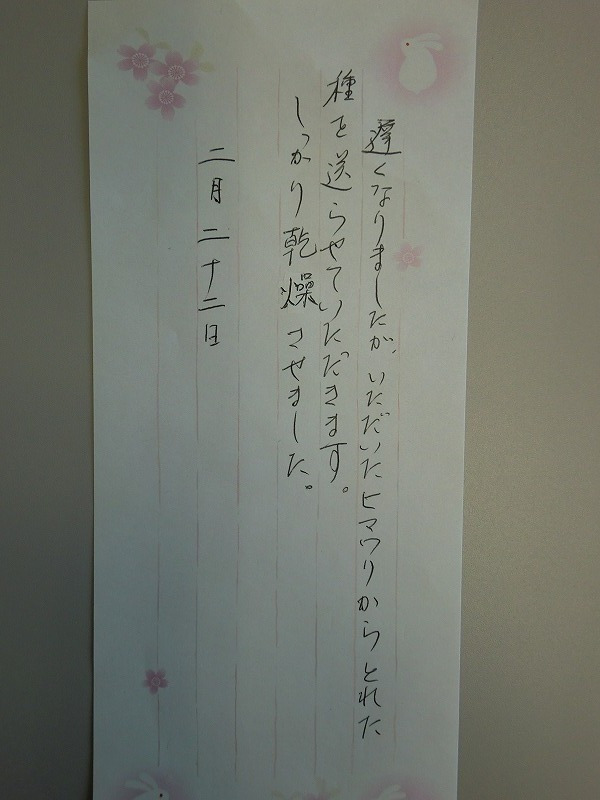 遅くなりましたが、いただいたヒマワリからとれた
種を送らせていただきます。
しっかり乾燥させました。
二月二十二日